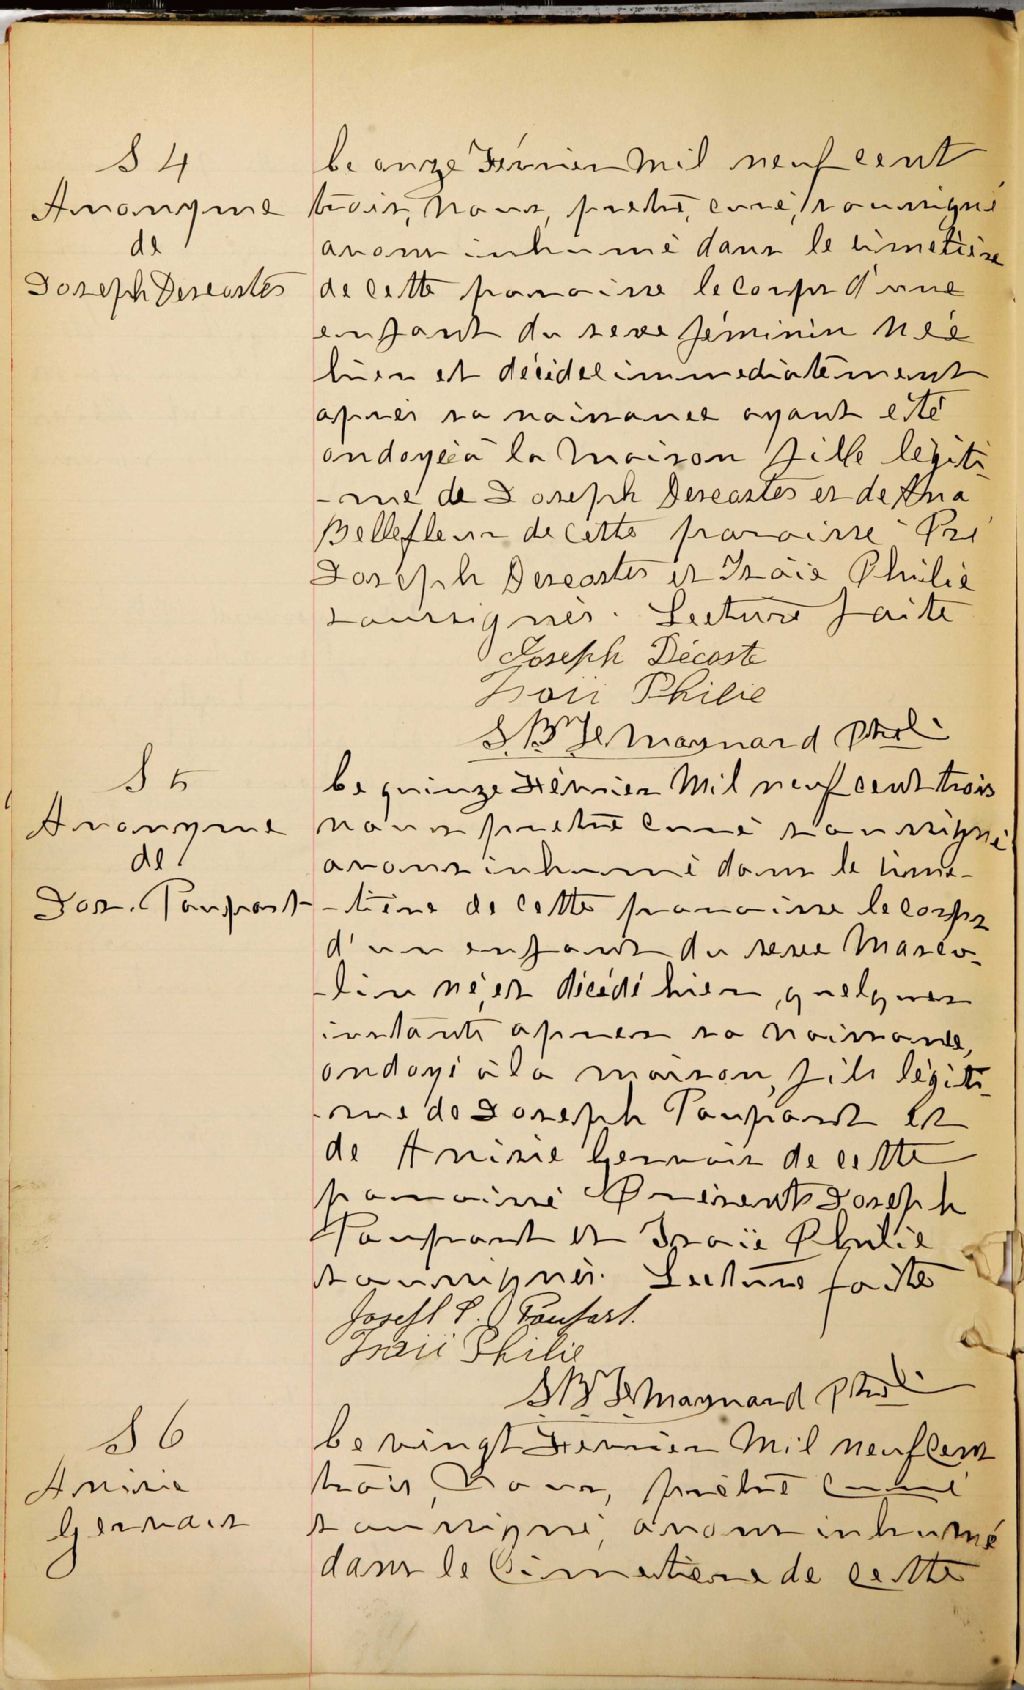 S 4
Anonyme
de
Joseph Descostes
Le onze Février Mil neuf cent
trois, Nous, prêtre, curé, soussigné
avons inhumé dans le cimetière
de cette paroisse le corps d'une
enfant du sexe féminin Née
hier et décédée immediatement
après sa naissance ayant été
ondoyée à la Maison fille légiti-
-me de Joseph Descostes et de Ana
Bellefleur de cette paroisse Pré
Joseph Descostes et Isaïe Philie
soussignés. Lecture faite
Joseph Décoste
Isaïi Philie
J. B. Maynard Ptre
S 5
Anonyme
de
Jos. Paupart
Le quinze Février Mil neuf cent trois
nous prêtre curé soussigné
avons inhumé dans le cime-
-tière de cette paroisse le corps
d'un enfant du sexe Mascu-
-lin né, et décédé hier, quelques
instants apres sa Naissance,
ondoyé à la maison, fils légiti-
-me de Joseph Paupart et
de Anisie Gervais de cette
paroisse Présents Joseph
Paupart et Isaïe Philie
soussignés. Lecture faite
Joseph P. Poupart.
Isaïi Philie
J. B. Maynard Ptre
S 6
Anisie
Gervais
Le vingt Février Mil neuf Cent
trois, Nous, prêtre curé
soussigné, avons inhumé
dans le Cimetiere de cette